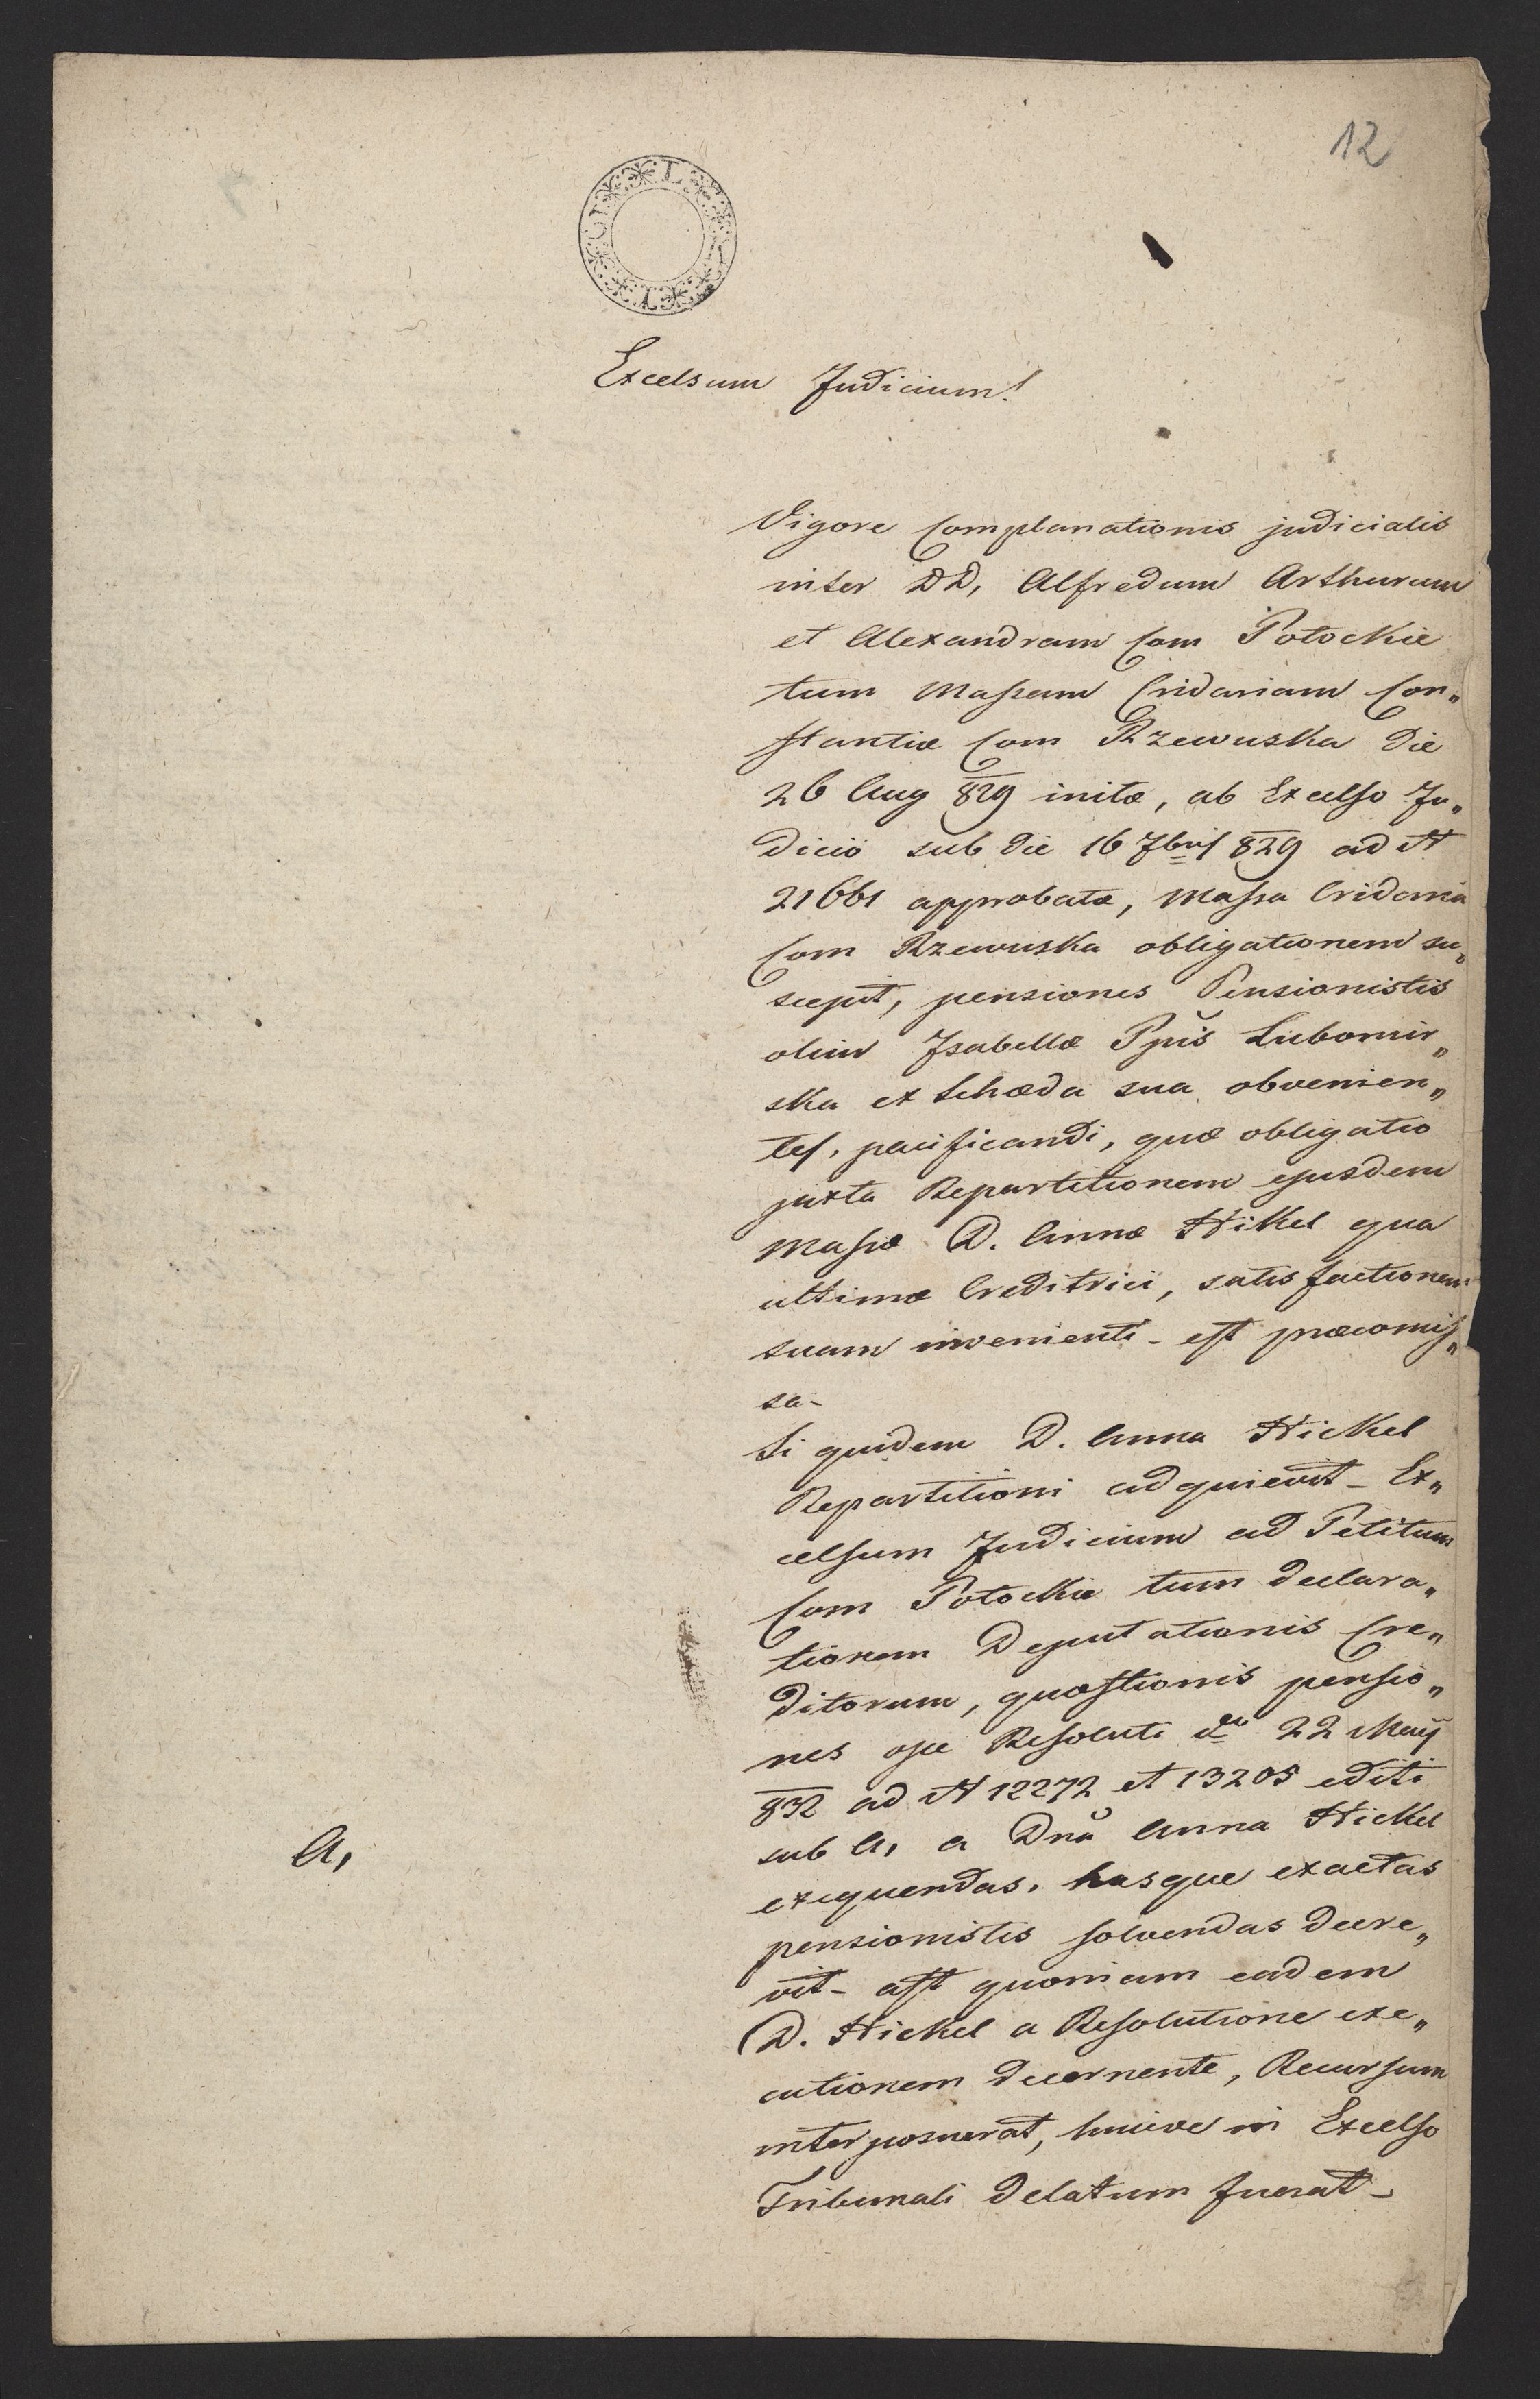 12
Excelsum Judicium!
Vigore Complanationis judicialis
inter DD, Alfredum Arthurum
et Alexandram Com Potockie
tum Massam Cridariam Con„
stantiæ Com Rzewuska die
26 Aug 829 initæ, ab Excelso Ju„
dicio sub die 16 7bris 829 ad N
21661 approbatæ, Massa Cridaria
Com Rzewuska obligationem su„
scepit, pensiones Pensionistis
olim Isabellæ Ppis Lubomir„
ska ex Schæda sua obvenien„
tes, pacificandi, quæ obligatio
juxta Repartitionem ejusdem
Massæ D. Annæ Nikel qua
ultimæ Creditrici, satisfactionem
suam invenienti - est præcomis„
sa-
Si quidem D. Anna Nickel
Repartitioni adquievit - Ex„
celsum Judicium ad Petitum
Com Potockie tum declara„
tionem Deputationis Cre„
ditorum, quæstionis pensio„
nes ope Resoluti de 22 Maij
832 ad N 12272 et 13205 editi
sub A, a Dna Anna Nickel
exequendas, hasque exactas
pensionistis solvendas decre„
vit - ast quoniam eadem
D. Nickel a Resolutione exe„
cutionem decernente, Recursum
interposuerat, huicve in Excelso
Tribunali delatum fuerat -
A,